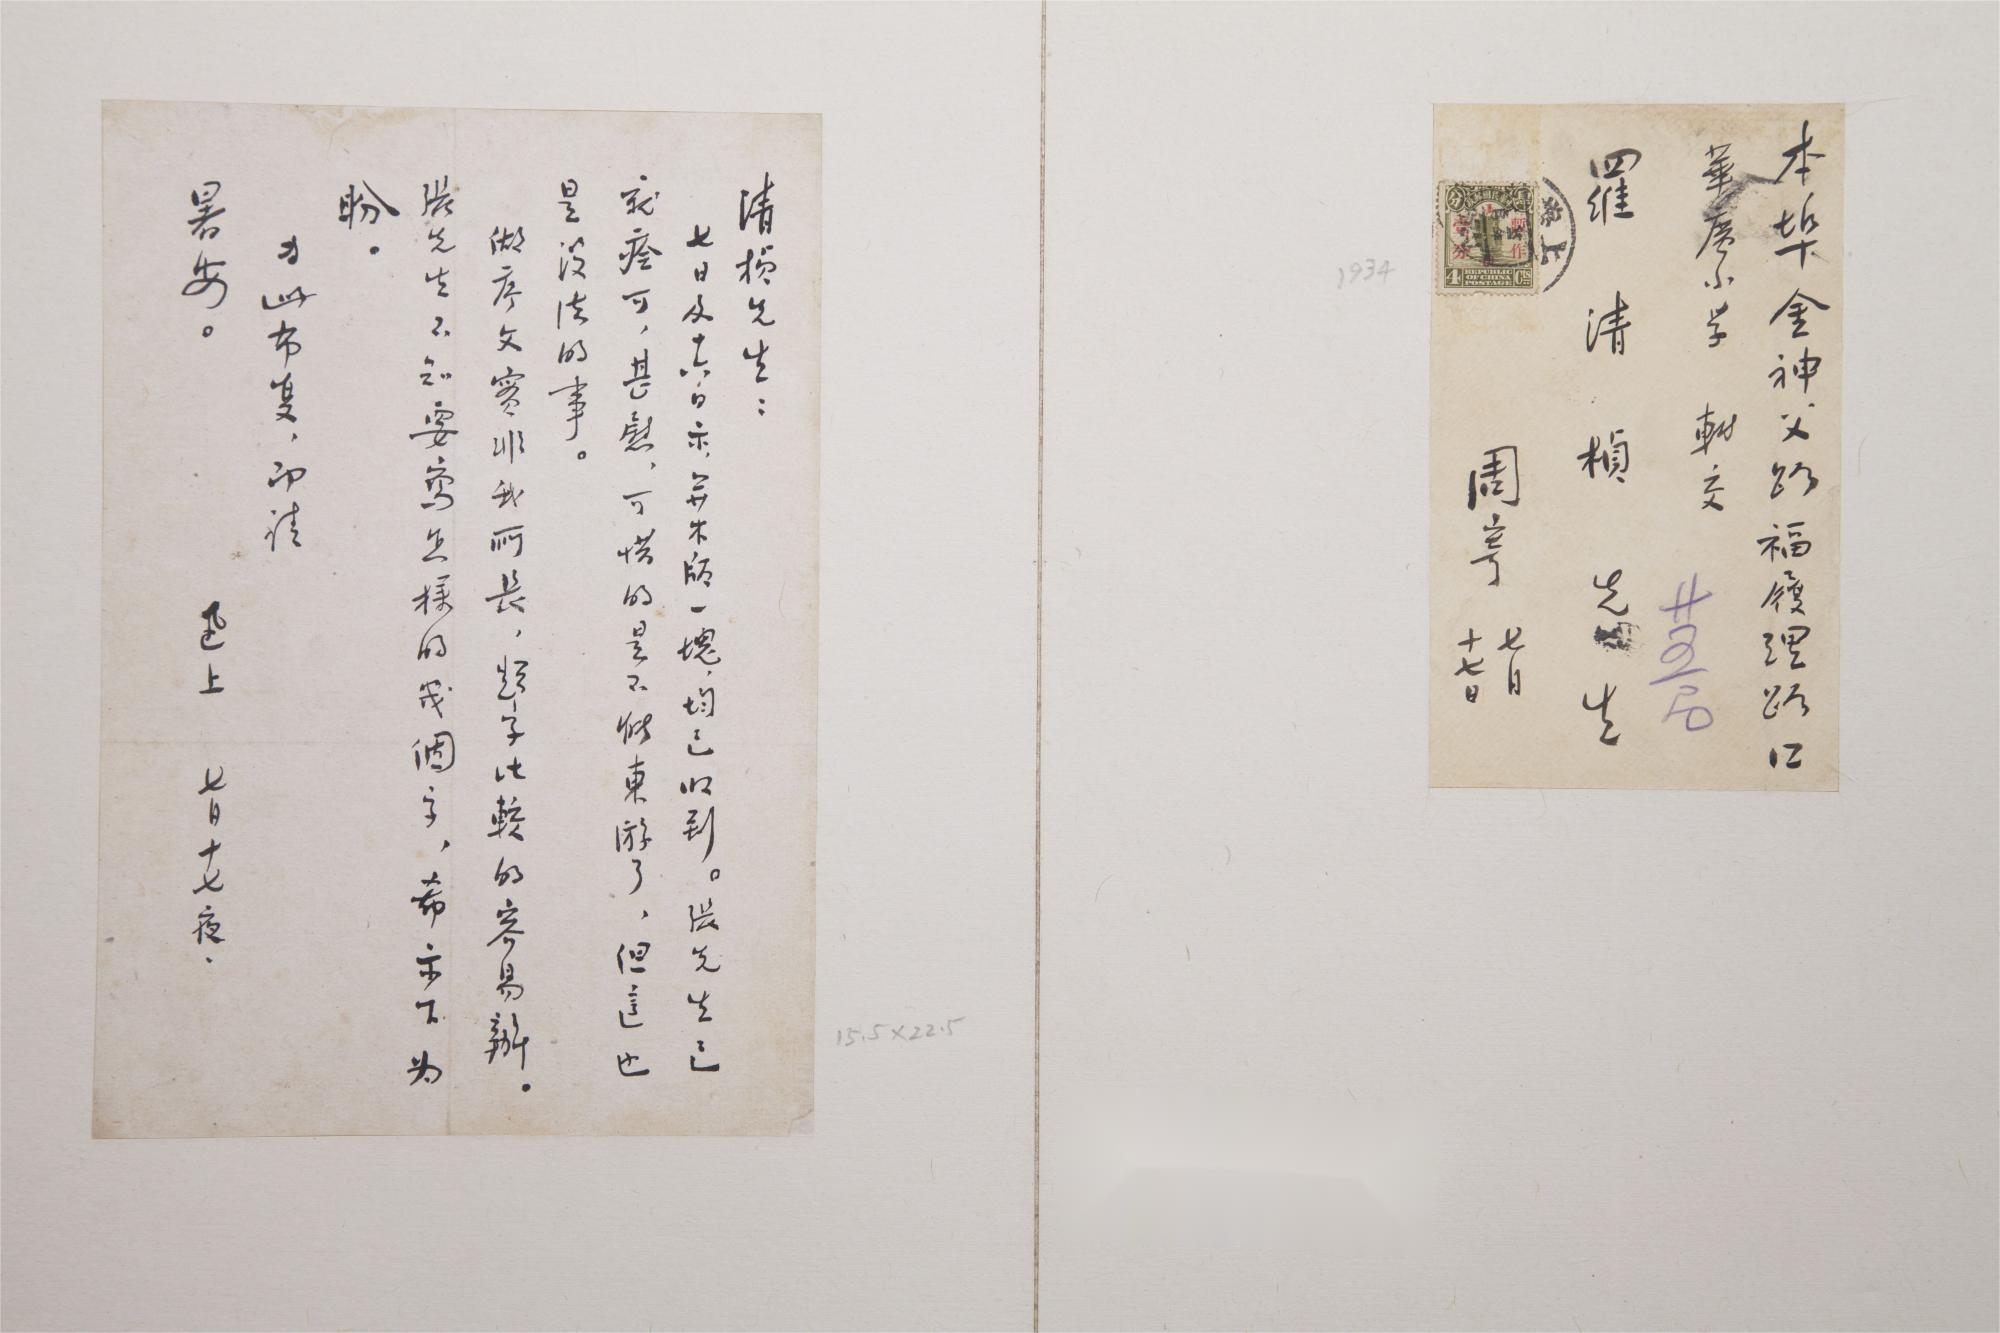 清楨先生：
七日及十六日示，并木版一塊，均已收到。張先生已
就痊可，甚慰，可惜的是不能東游了，但這也
是沒法的事。
做序文實非我所長，題字比較的容易辦。
張先生不知要寫怎樣的幾個字，希示下為
盼。
專此布复，即請
暑安。
迅上 七月十七夜、
15.5×22.5
本埠金神父路福履理路口
華廣小學 轉交
羅清楨先生
周寄 七月
十七日
廿五局
1934
暫作
壹分
上海
4 Cts
REPUBLIC
OF CHINA
POSTAGE